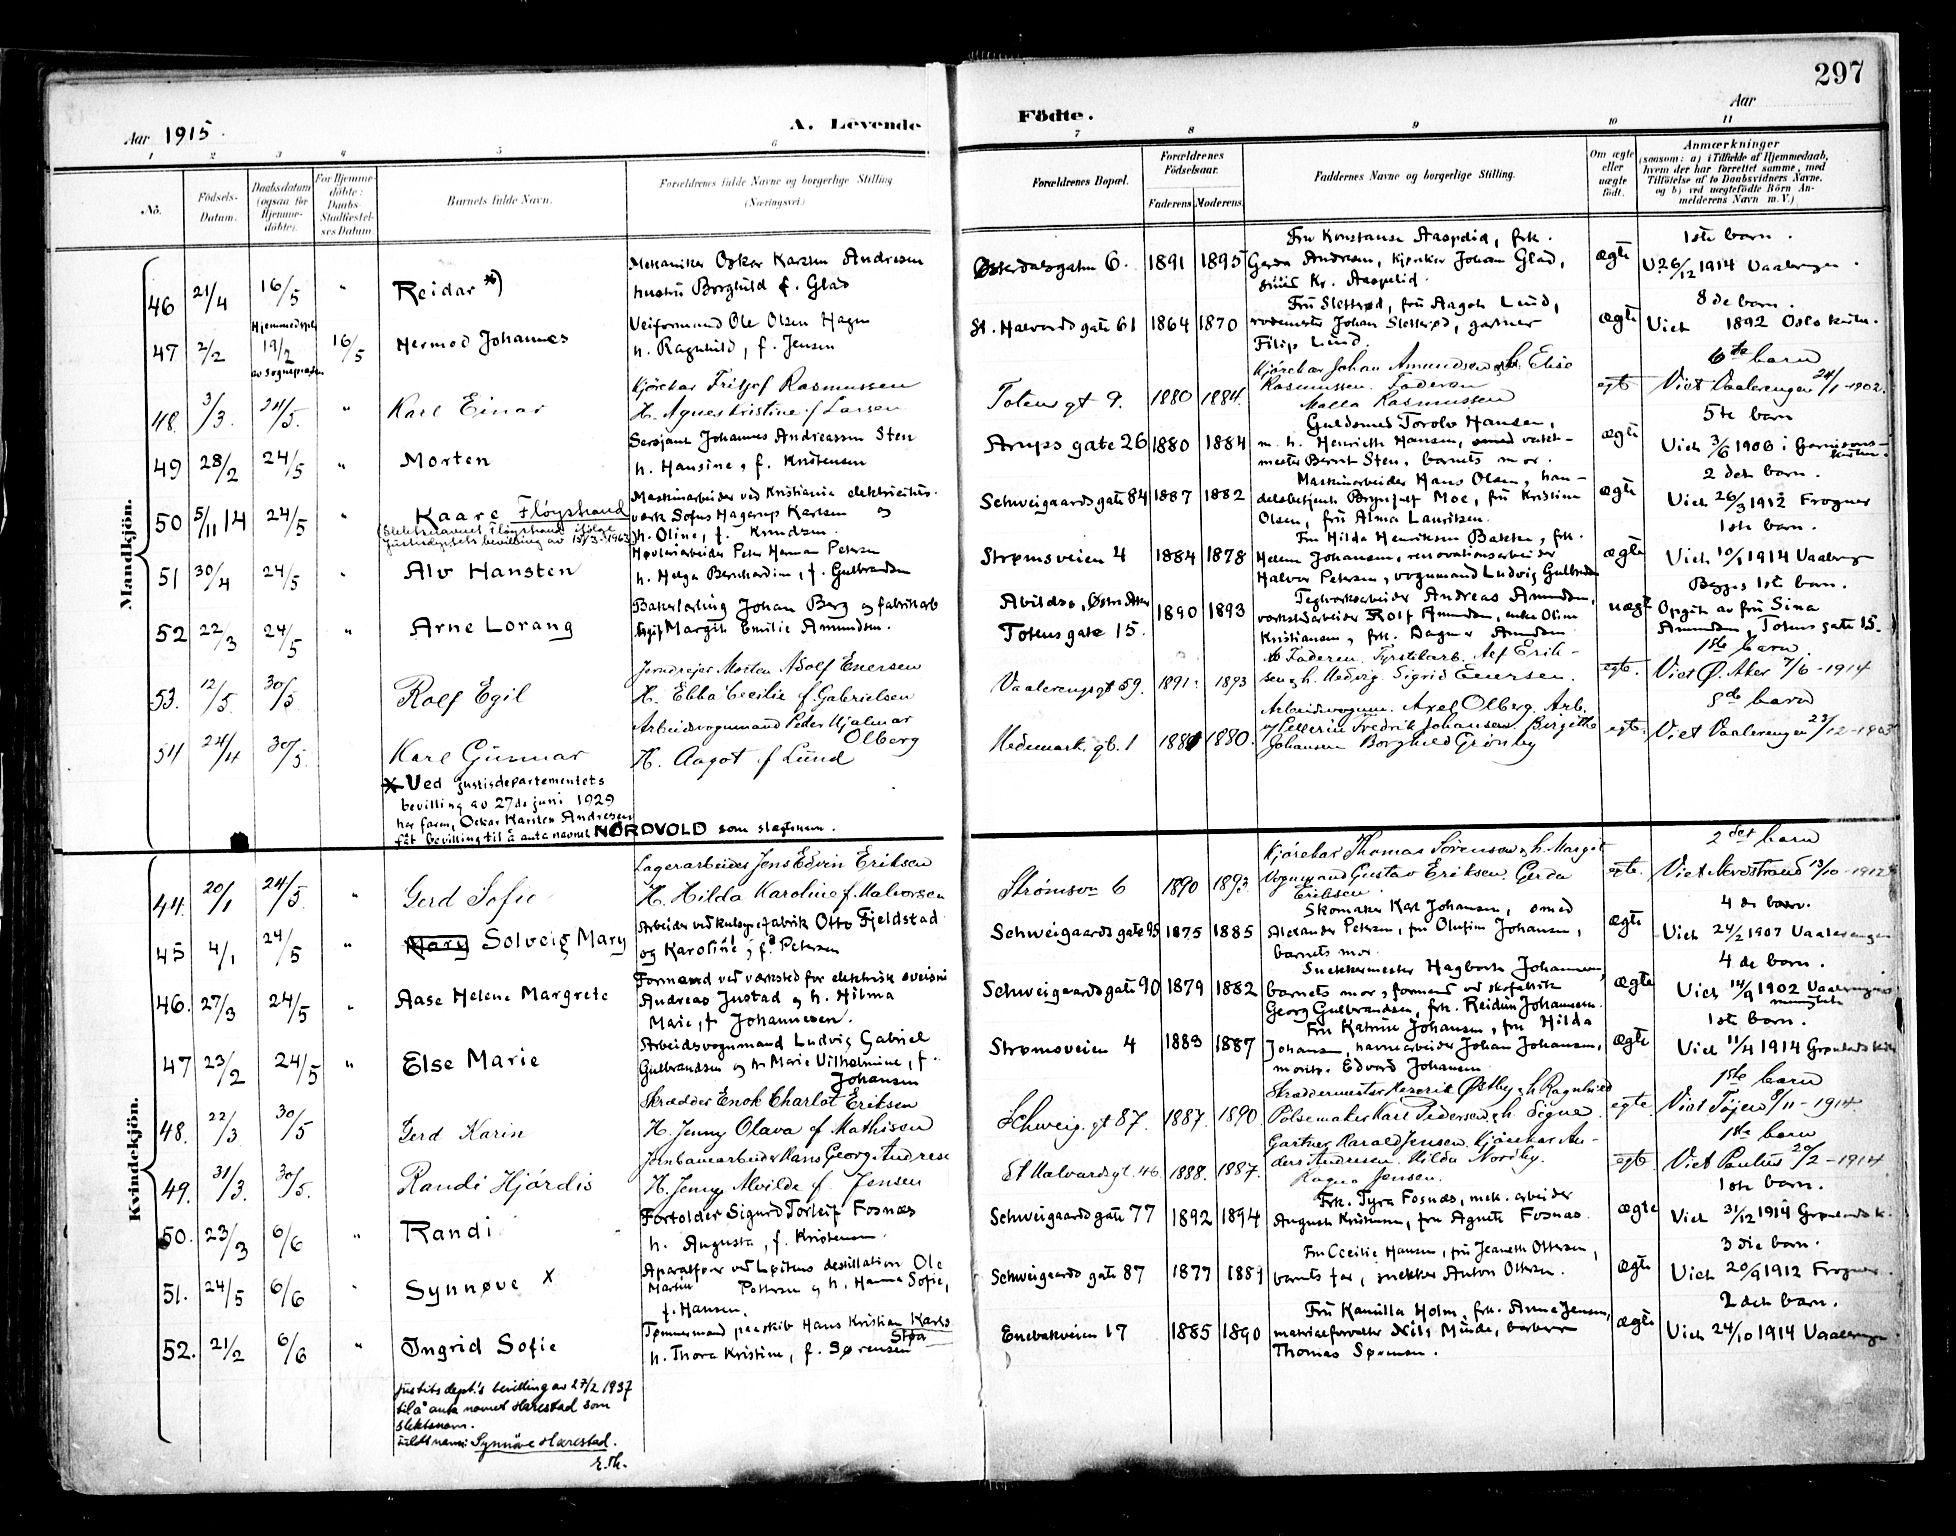 297
Aar 1915.
A. Levende
Födte.
Aar
1 2 3 4 5 6 7 8 9 10 11
No.
Födsels-Datum.
Daabsdatum (ogsaa for Hjemme-döbte).
For Hjemme-döbte: Daabs-Stadfæstel-ses Datum.
Barnets fulde Navn.
Forældrenes fulde Navne og borgerlige Stilling (Næringsvei.)
Forældrenes Bopæl.
Forældrenes Födselsaar.
Faderens. Moderens.
Faddernes Navne og borgerlige Stilling.
Om ægte eller uægte födt.
Anmærkninger
(saasom: a) i Tilfælde af Hjemmedaab, hvem der har forrettet samme, med Tilföielse af to Daabsvidners Navne, og b) ved uægtefödte Börn An-melderens Navn m. V.)
Mandkjön.
46 21/4 16/5 " Reidar *)
Mekaniker Oskar Karsten Andresen
hustru Borghild f. Glad
Østerdalsgaten 6. 1891 1895
Fru Konstanse Aaspelid, frk.
Gerda Andresen, kjørekar Johan Glad,
Kr. Aaspelid.
ægte
1ste barn.
V. 26/12 1914 Vaalerengen.
47 2/2 Hjemmedøpt 19/2 av sogneprsten 16/5 Hermod Johannes
Veiformand Ole Olsen Hagen
h. Ragnhild, f. Jensen
St. Halvards gate 61 1864 1870
Fru Sletterød, fru Aagot Lund,
rodemester Johan Sletterød, gartner
Filip Lund.
ægte
8de barn.
Viet 1892 Oslo kirke.
48. 3/3. 24/5. " Karl Einar
Kjørekar Fritjof Rasmussen
H. Agnes Kristine f Larsen
Totens gt 9. 1880 1884.
Kjørekar Johan Amundsen og h. Elise
Rasmussen. Faderen
Malla Rasmussen
egte
6te barn
Viet Vaalerengen 24/1-1902.
49 28/2 24/5 " Morten
Sersjant Johannes Andreassen Sten
h. Hansine, f. Kristensen
Arups gate 26 1880 1884
Guldsmed Torolv Hansen,
m. h. Henriette Hansen, smed verk-
mester Bernt Sten, barnets mor.
ægte
5te barn
Viet 3/6 1906 i Garnisons-
kirken.
50 5/11 14 24/5 " Kaare Fløystrand
(Slektsnavnet Fløystrand ifølge
Justisdeptets bevilling av 15/3 1963)
Maskinarbeider ved Kristiania elektricitets-
verk Sofus Hagerup Karlsen og
h. Oline, f. Knudsen
Schweigaards gate 84 1887 1882
Maskinarbeider Hans Olsen, han-
delsbetjent Brynjulf Moe, fru Kristine
Olsen, fru Alma Lauritzen.
ægte
2det barn.
Viet 26/3 1912 Frogner
51 30/4 24/5 " Alv Hansten
Høvleriarbeider Peter Herman Petersen
h. Helga Bernhardine, f. Gulbrandsen
Strømsveien 4 1884 1878
Fru Hilda Henriksen Bakken, frk.
Helene Johansen, renovationsarbeider
Halvor Petersen, vognmand Ludvig Gulbrandsen
ægte
1ste barn.
Viet 10/1 1914 Vaalereng
52 22/3 24/5 " Arne Lorang
Bakerlærling Johan Berg og fabrikarb
Margit Emilie Amundsen.
Abildsø, Østre Aker
Totens gate 15. 1890 1893
Teglverksarbeider Andreas Amundsen,
verkstedarbeider Rolf Amundsen, enke Oline
Kristiansen, frk. Dagmar Amundsen
uægte
Begges 1ste barn.
Opgit av fru Sina
Amundsen, Totens gate 15.
53. 12/5. 30/5. Rolf Egil
Jerndreier Morten Adolf Enersen
H. Ebba Cecilie f. Gabrielsen
Vaalerengsgt 59. 1891. 1893
Faderen. Fyrstikarb. Alf Erik-
sen og h. Hedvig. Sigrid Enersen.
egte.
1ste barn.
Viet Ø. Aker 7/6-1914
54 24/4 30/5. Karl Gunnar
Arbeidsvognmand Peder Hjalmar
Olberg
H. Aagot f Lund
Hedemark. gt. 1 1880.
Arbeidsvognm. Axel Olberg. Arb.
Fredrik Johansen Birgithe
Johansen Borghild Grønby
egte.
5de barn
Viet Vaalerengen 23/12-1903
* Ved justisdepartementets
bevilling av 27de juni 1929
har faren, Oskar Karsten Andresen
fåt bevilling til å anta navnet NORDVOLD som slegtsnavn.
Kvindekjön.
44. 20/1 24/5. " Gerd Sofie
Lagerarbeider Jens Edvin Eriksen
H. Hilda Karoline f. Halvorsen
Strømsvn 6 1890 1893.
Kjørekar Thomas Sørensen og h. Margit
Vognmand Gustav Eriksen. Gerda
Eriksen.
egte.
2det barn
Viet Nevestrand 13/10-1912
45 4/1 24/5 " Mary Solveig Mary
Arbeider ved kulsyrefabrik Otto Fjeldstad
og Karoline, f. Petersen
Schweigaards gate 95 1875 1885
Skomaker Karl Johansen, smed
Alexander Petersen, fru Olufine Johansen,
barnets mor.
ægte
4de barn.
Viet 24/2 1907 Vaalerengen
46. 27/3 24/5 " Aase Helene Margrete
Formand ved værksted for elektrisk sveisni
Andreas Justad og h. Hilma
Marie, f. Johannesen.
Schweigaards gate 90 1879 1882
Snekkermester Hagbart Johannesen,
barnets mor, formand ved skofabrik
Georg Gulbrandsen, frk. Reidun Johannesen.
ægte
4de barn.
Viet 14/9 1902 Vaalerengens
menighet
47 23/2 24/5 " Else Marie
Arbeidsvognmand Ludvig Gabriel
Gulbrandsen og h. Marie Vilhelmine, f.
Johansen
Strømsveien 4 1883 1887
Fru Katrine Johansen, fru Hilda
Johansen, havnearbeider Johan Johansen,
Edvard Johansen
ægte
1ste barn.
Viet 11/4 1914 Grønlands kirke
48. 22/3 30/5 Gerd Karin
Skrædder Enok Charlot Eriksen
H. Jenny Olava f Mathisen
Schweig. gt 87. 1887. 1890
Skræddermester Henrik Østby og h Ragnhild
Pølsemaker Karl Pedersen og h. Signe.
egte
1ste barn
Viet Tøyen 8/11-1914.
49. 31/3. 30/5. Randi Hjørdis
Jernbanearbeider Hans Georg Andrese
H. Jenny Alvilde f. Jensen
St Halvards gt. 46 1888. 1887.
Gartner Harald Jensen. Kjørekar An-
ders Andresen. Hilda Nordby.
Ragna Jensen.
egte
1ste barn
Viet Paulus 20/2-1914
50. 23/3 6/6 " Randi
Fortolder Sigurd Torleif Fosnæs
h. Augusta, f. Kristensen.
Schweigaards gate 77 1892 1894
Frk. Tyra Fosnæs, mek. arbeider
August Kristensen, fru Agnete Fosnæs.
ægte
1ste barn.
Viet 31/12 1914 Grønlands k.
51. 24/5 6/6 " Synnøve X
Aparatfører ved Løitens destillation Ole
Martin Pettersen og h. Hanna Sofie,
f. Hansen.
Schweigaards gate 87 1877 1889
Fru Cecilie Hansen, fru Jeanette Ottersen,
barnets far, snekker Anton Ottersen.
ægte
3die barn.
Viet 20/9 1912 Frogner
52. 21/2 6/6 " Ingrid Sofie
Tømmermand paa skib Hans Kristian Karls
Støa
h. Thora Kristine, f. Sørensen
Enebakveien 17 1885 1890
Fru Kamilla Holm, frk. Anna Jensen,
matrialforvalter Nils Minde, barberer
Thomas Sørensen.
ægte
2det barn.
Viet 24/10 1914 Vaalerengen
Justitsdept.'s bevilling av 27/2 1937
til å anta navnet Harestad som
slektsnavn.
fulde navn: Synnöve Harestad.
E.Th.